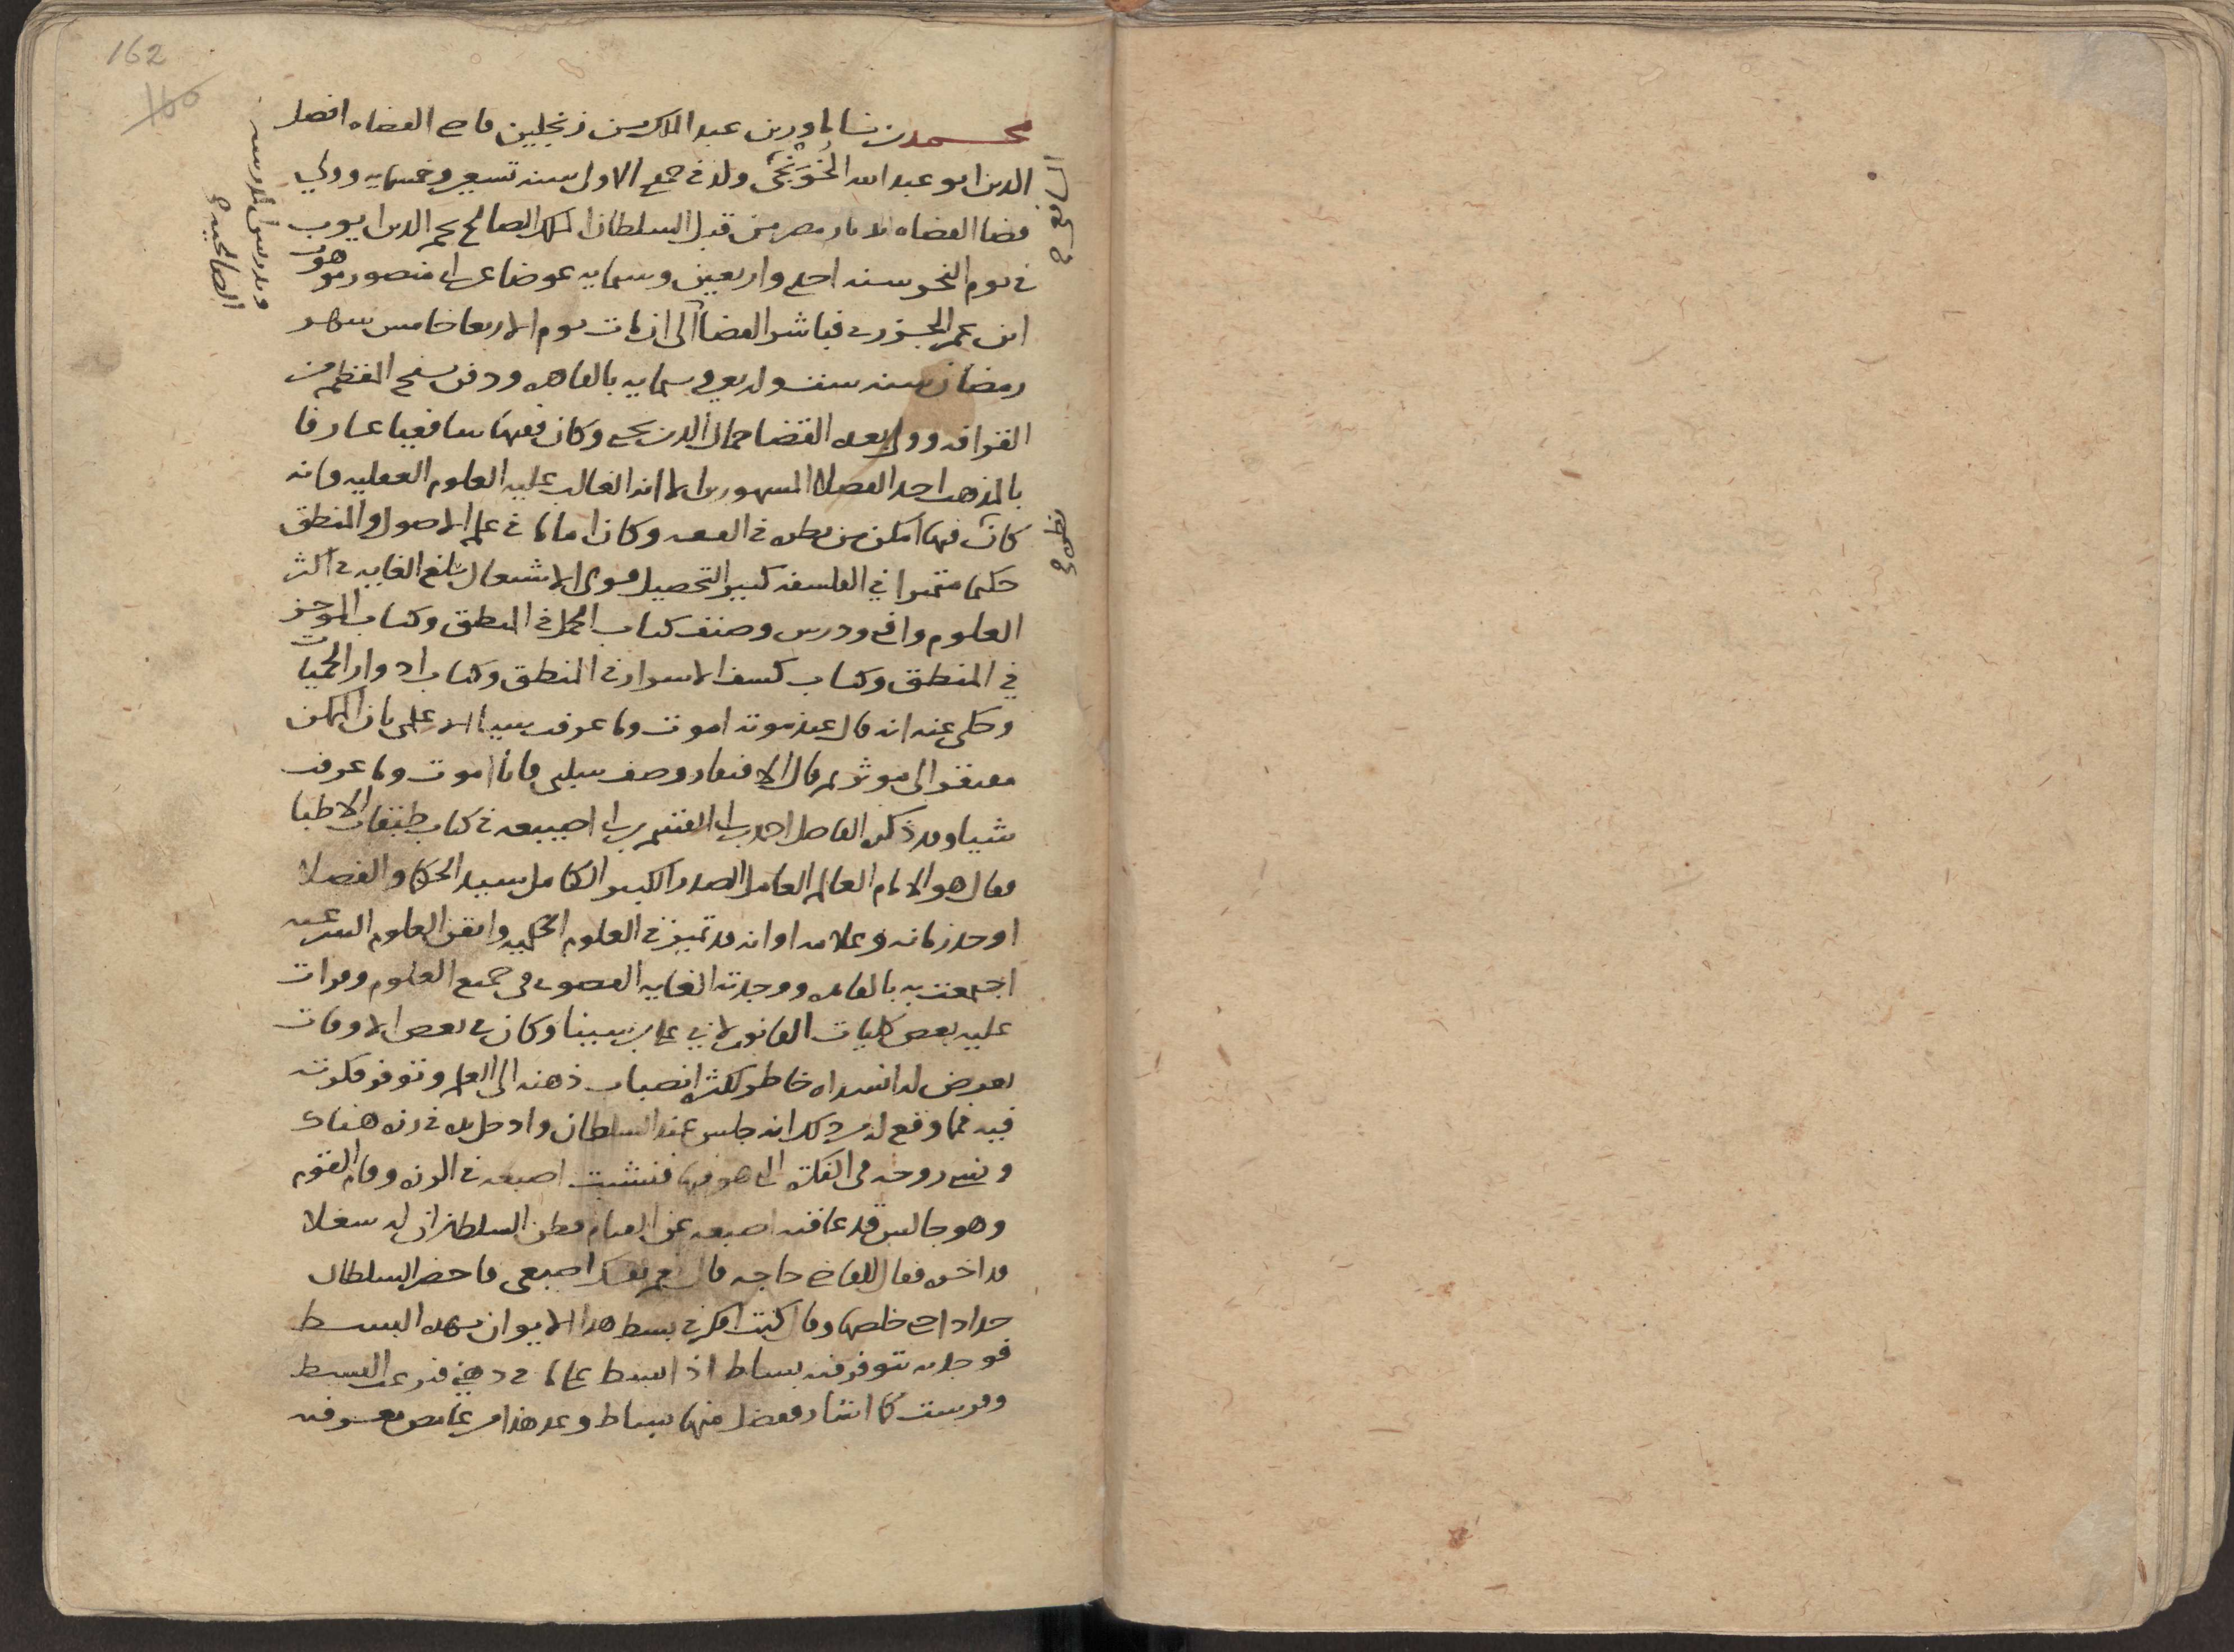 162
160
محمد بن ناماور بن عبد الملك بن زنجلين قاضي القضاه افضل
الدين ابو عبد الله الخونجي ولد في جمدى الاولى سنه تسعين وخمسمايه وولي
الشافعي صح
وتدريس المدرسه
الصالحيه صح
قضا القضاه بديار مصر من قبل السلطان الملك الصالح نجم الدين ايوب
في يوم النحر سنه احدى واربعين وستمايه عوضا عن ابي منصور موهوب
ابن عمر الجزري فباشر القضا الى ان مات يوم الاربعا خامس شهر
رمضان سنه ست واربعين وستمايه بالقاهره ودفن بسفح المقطم من
القرافه وولي بعده القضا جمال الدين يحيى وكان فقيها شافعيا عارفا
بالمذهب احد الفضلا المشهورين الا انه الغالب عليه العلوم العقليه وانه
كان فيها امكن من نظره في الفقه وكان اماما في علم الاصول والمنطق
نظره صح
حكيما متميزا في الفلسفه كثير التحصيل قوي الاشتغال بلغ الغايه في اكثر
العلوم وافتى ودرس وصنف كتاب الجمل في المنطق وكتاب الموجز
في المنطق وكتاب كشف الاسرار في المنطق وكتاب ادوار الحميات
وحكي عنه انه قال عند موته اموت وما عرفت شيا الا علمي بان الممكن
مفتقر الى موثر ثم قال الافتقار وصف سلبي فانا اموت وما عرفت
شيا وقد ذكره الفاضل احمد بن ابي القسم بن ابي اصيبعه في كتاب طبقات الاطبا
فقال هو الامام العالم العامل الصدر الكبير الكامل سيد الحكما والفضلا
اوحد زمانه وعلامه اوانه قد تميز في العلوم الحكميه واتقن العلوم الشرعيه
اجتمعت به بالقاهره ووجدته الغايه القصوى في جميع العلوم وقرات
عليه بعض كليات القانون لابي علي بن سينا وكان في بعض الاوقات
يعرض له انشداه خاطر لكثره انصباب ذهنه الى العلم وتوفر فكرته
فيه فمما وقع له من ذلك انه جلس عند السلطان وادخل يده في رزه هناك
ونسي روحه في الفكره التي هو فيها فنشبت اصبعه في الرزه وقام القوم
وهو جالس قد عاقته اصبعه عن القيام فظن السلطان ان له شغلا
قد اخره فقال اللقاضي حاجه قال نعم تفك اصبعي فاحضر السلطان
حدادا حتى خلصها وقال كنت افكر في بسط هذا الايوان بهذه البسط
فوجدته يتوفر فيه بساط اذا بسط على ما في ذهني فنزعت البسط
وفرست كما اشار ففضل منها بساط وعد هذا من غامض معرفته